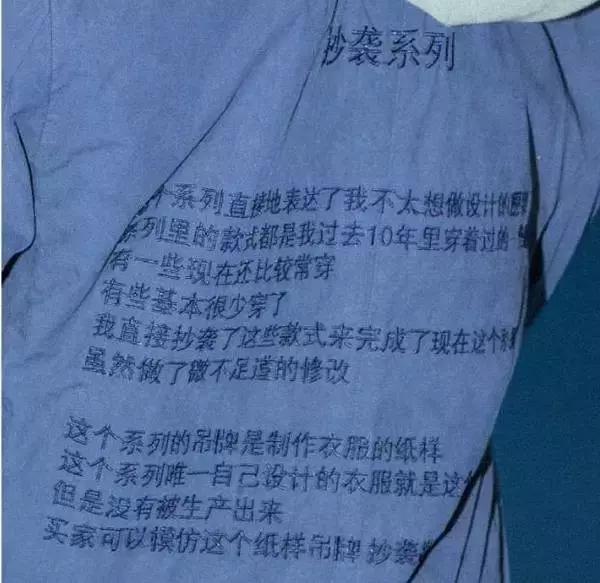 抄袭系列
个系列直接地表达了我不太想做设计的
系列里的款式都是我过去10年里穿着过的一
有一些现在还比较常穿
有些基本很少穿了
我直接抄袭了这些款式来完成了现在这个系
虽然做了微不足道的修改
这个系列的吊牌是制作衣服的纸样
这个系列唯一自己设计的衣服就是这
但是没有被生产出来
买家可以模仿这个纸样吊牌 抄袭